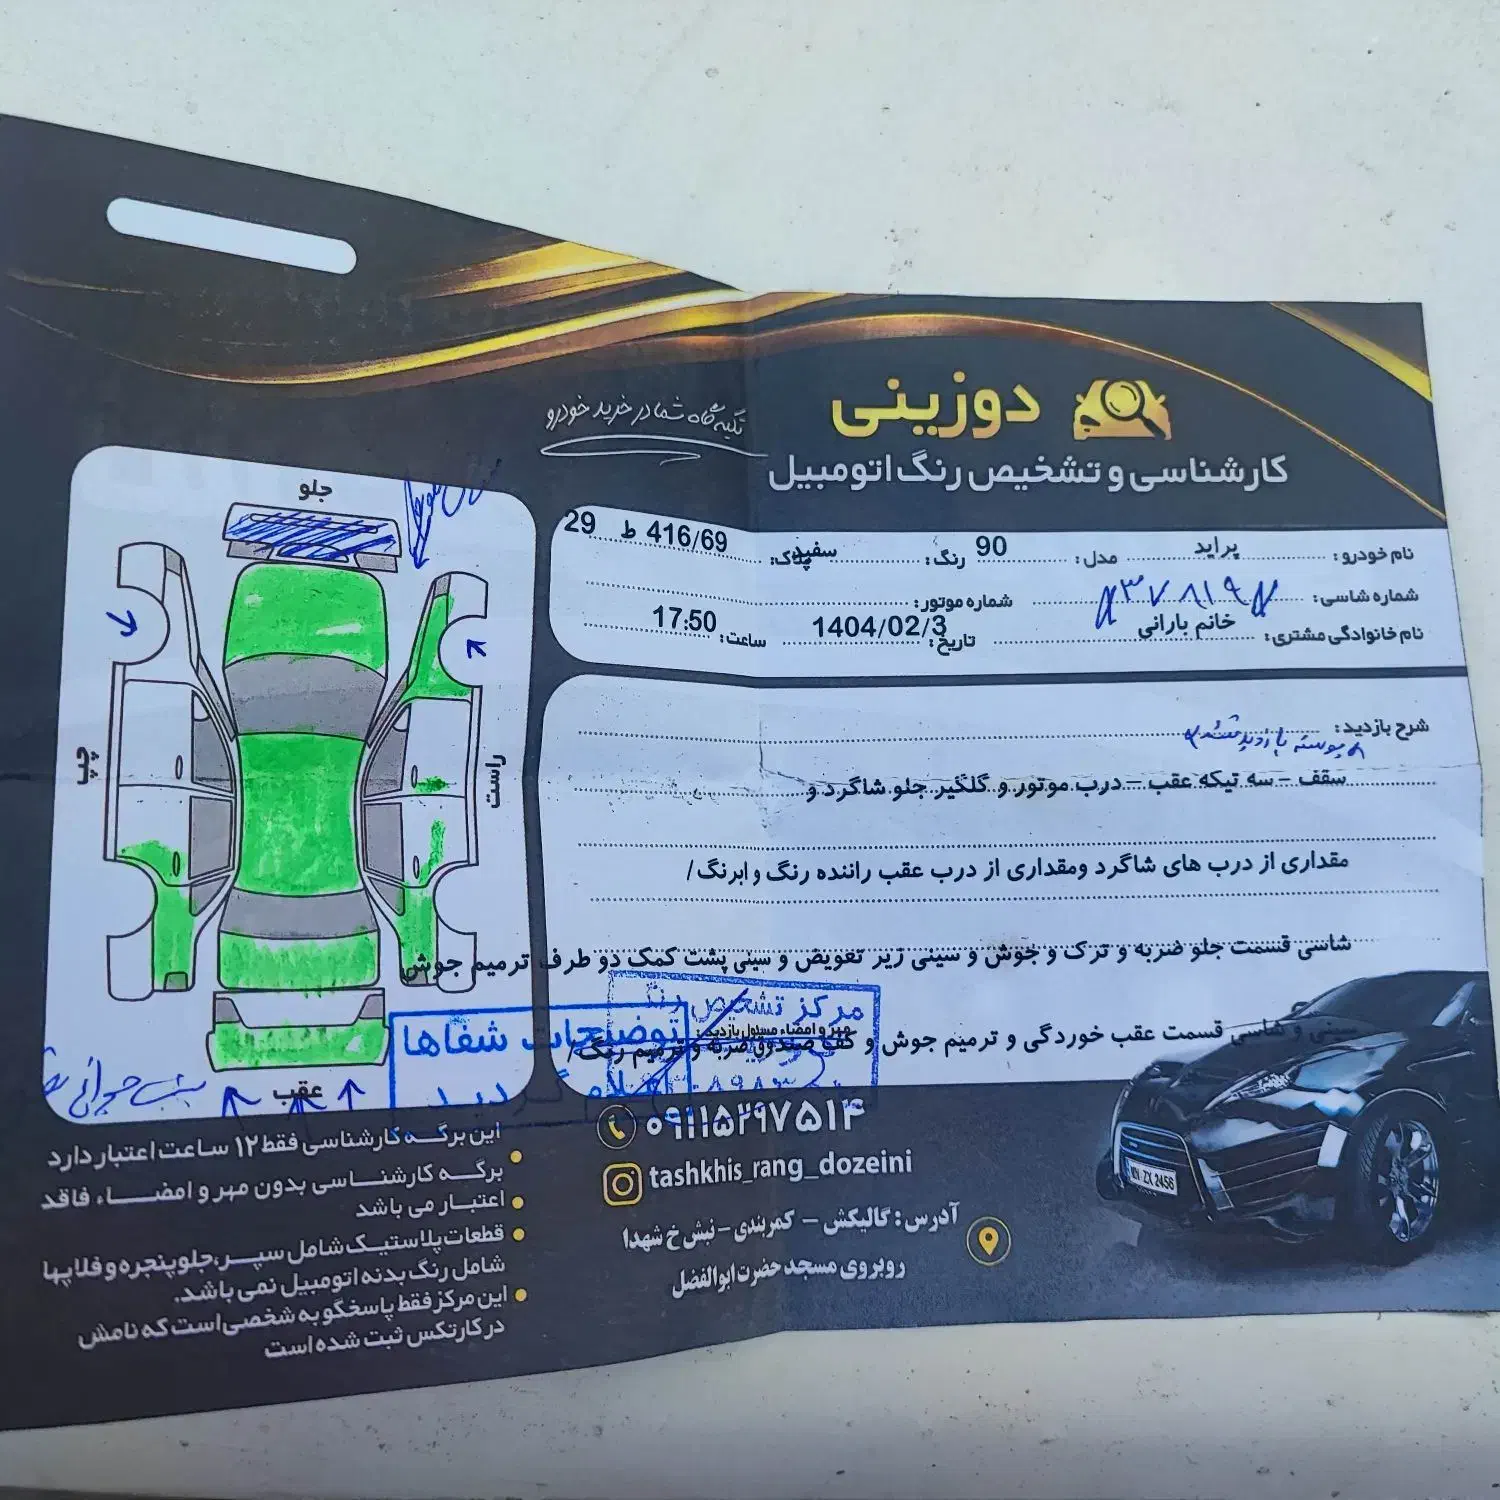 تکیه گاه شما در خرید خودرو
دوزینی
کارشناسی و تشخیص رنگ اتومبیل
نام خودرو: پراید مدل: 90 رنگ: سفید پلاک: 416/69 ط 29
شماره شاسی: شماره موتور:
نام خانوادگی مشتری: خانم بارانی تاریخ: 1404/02/3 ساعت: 17:50
جلو
چپ
راست
عقب
شرح بازدید:
سقف - سه تیکه عقب - درب موتور و گلگیر جلو شاگرد و
مقداری از درب های شاگرد ومقداری از درب عقب راننده رنگ و ابرنگ/
شاسی قسمت جلو ضربه و ترک و جوش و سینی زیر تعویض و سینی پشت کمک دو طرف ترمیم جوش
سینی و شاسی قسمت عقب خوردگی و ترمیم جوش و کف صندوق ضربه و ترمیم رنگ/
مهر و امضاء مسئول بازدید:
مرکز تشخیص رنگ
توضیحات شفاها
اعلام گردید
این برگه کارشناسی فقط ۱۲ ساعت اعتبار دارد
برگه کارشناسی بدون مهر و امضاء فاقد
اعتبار می باشد
قطعات پلاستیک شامل سپر،جلوپنجره و فلاپها
شامل رنگ بدنه اتومبیل نمی باشد.
این مرکز فقط پاسخگو به شخصی است که نامش
در کارتکس ثبت شده است
۰۹۱۱۵۲۹۷۵۱۴
tashkhis_rang_dozeini
آدرس: گالیکش - کمربندی - نبش خ شهدا
روبروی مسجد حضرت ابوالفضل